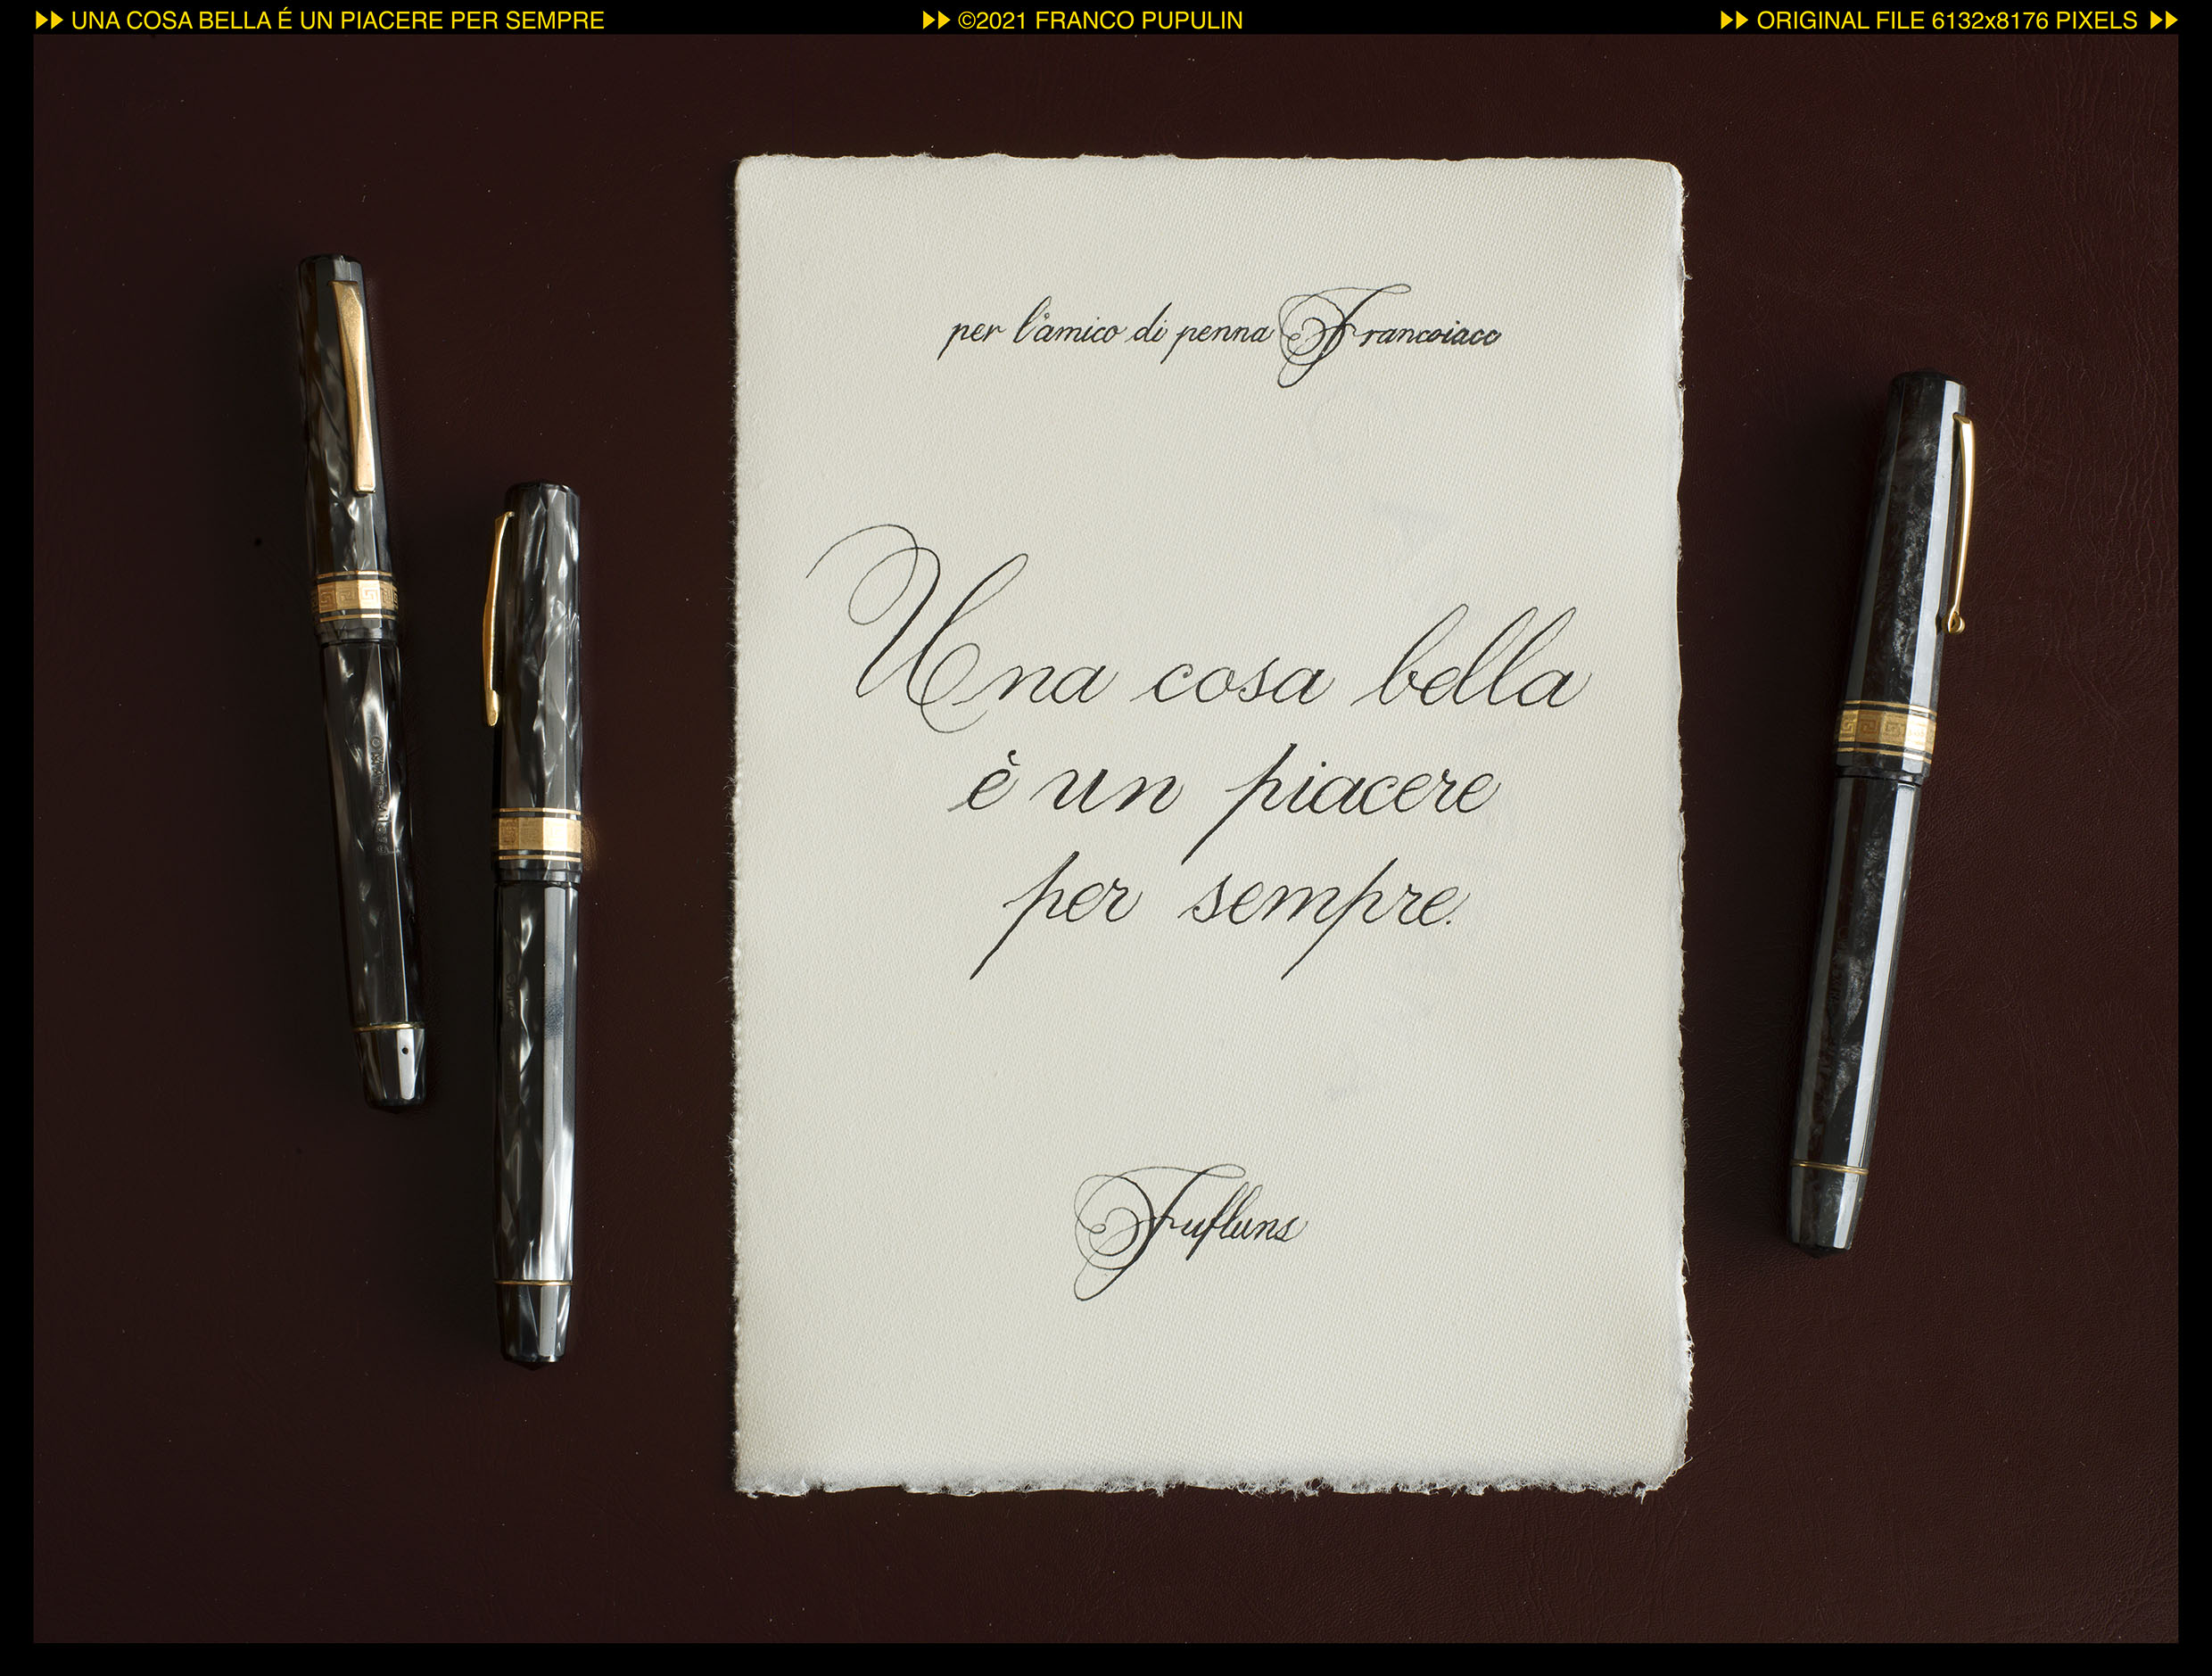 UNA COSA BELLA É UN PIACERE PER SEMPRE
©2021 FRANCO PUPULIN
ORIGINAL FILE 6132x8176 PIXELS
per l'amico di penna Francoiacc
Una cosa bella
è un piacere
per sempre.
Fufluns